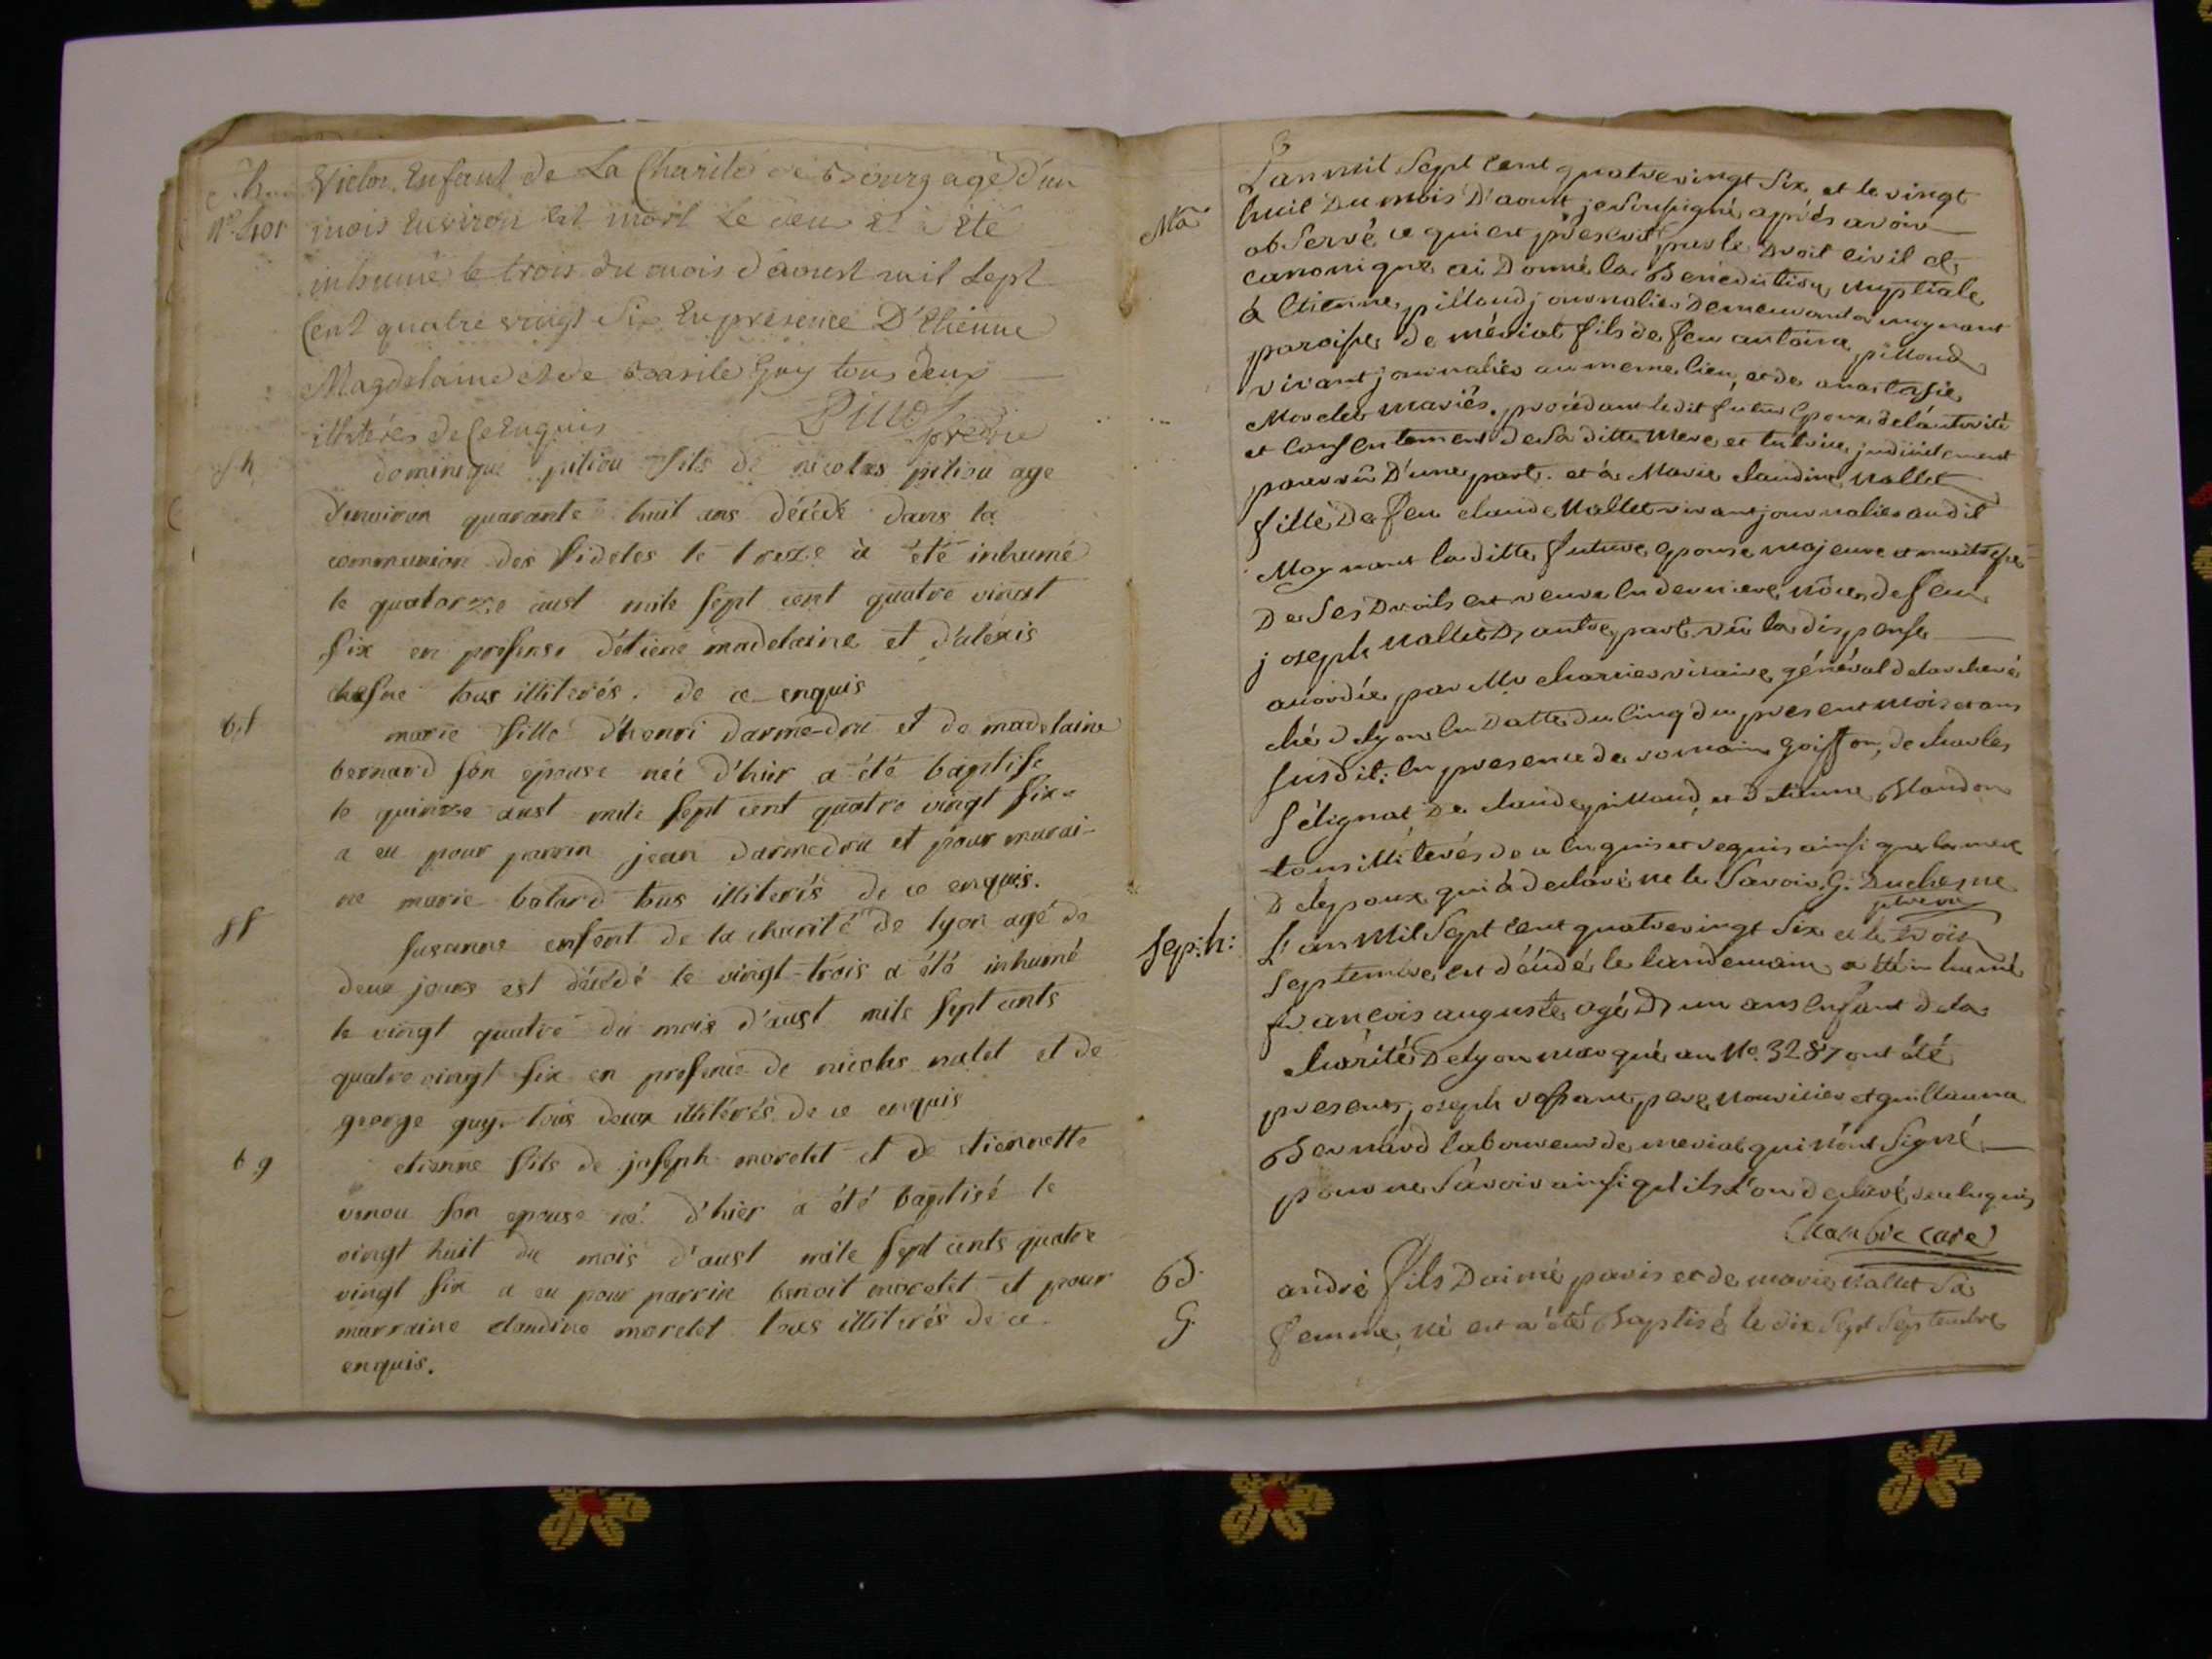 Victor, Enfant de La Charité de Bourg agé d'un
mois Environ est mort Le deux Et a Eté
inhumé le trois du mois d'aoust mil Sept
Cent quatre vingt Six En présence D'Etienne
Magdelaine et de Basile Guy tous deux
illiterés de Ce Enquis
s h
dominique pitiou fils de nicolas pitiou age
d'environ quarante huit ans décédé dans la
communion des fideles le treize a été inhumé
le quatorze aust mile sept cent quatre vingt
six en presense d'étiene madelaine et d'aléxis
chesne tous illiterés. de ce enquis
b. f
marie fille d'henri darmedru et de madelaine
bernard son epouse neé d'hier a été baptise
le quinze aust mile sept cent quatre vingt six
a eu pour parrin jean darmedru et pour marai-
ne marie batard tous illiterés de ce enquis.
s f
susanne enfent de la charité de lyon agé de
deux jours est décédé le vingt-trois a été inhumé
le vingt quatre du mois d'aust mile sept cents
quatre vingt six en presence de nicolas nalet et de
george guy tous deux illitérés de ce enquis
b g
etienne fils de joseph morelet et de etiennette
venou son epouse né d'hier a été baptisé le
vingt huit du mois d'aust mile sept cents quatre
vingt six a eu pour parrin benoit morelet et pour
marraine claudine morelet tous illiterés de ce
enquis.
Ma
L'an mil Sept Cent quatrevingt Six et le vingt
huit Du mois D'aoust je Soussigné après avoir
observé ce qui est préscrit par le Droit civil et
canonique ai Donné la Bénédiction nuptiale
à Etienne pilloud journalier Demeurant a maynant
paroisse de mériat fils de feu antoine pilloud
vivant journalier au meme lieu, et de anastasie
Morelet mariés. procédant ledit futur Epoux de l'autorité
et Consentement de Sa ditte Mere et tutrice judiciairement
pourvû D'une part. et à Marie claudine Nallet
fille De feu claude Nallet vivant journalier audit
Maynant la ditte future epouse majeure et maitresse
De Ses Droits et veuve En derniere nôces de feu
joseph Nallet D'autre part. vû la dispense
accordée par Mr charrier vicaire général de l'archevé
ché de lyon En Datte du Cinq du present mois et ans
Susdit. En presence de romain goiffon, de charles
Sélignat De claude pilloud, et d'etienne Blandon
tous illitérés de ce Enquis et requis ainsi que la mere
De l'epoux qui à declaré ne le Savoir. G: Duchesne
ptre vic
Sep: h:
L'an Mil Sept Cent quatrevingt Six et le trois
Septembre est décédé, le landemain a été inhumé
françois auguste agé D'un ans Enfant de la
charité De lyon marqué au No. 3287 ont été
presents joseph père nouricier et guillaume
Bernard laboureur de meriat qui n'ont Signé
pour ne Savoir ainsi qu'ils l'on déclaré de ce Enquis
Chambre Curé
B.
G
andré fils D'aimé paris et de marie Nallet Sa
femme, né est a été Baptisé le dix Sept Septembre